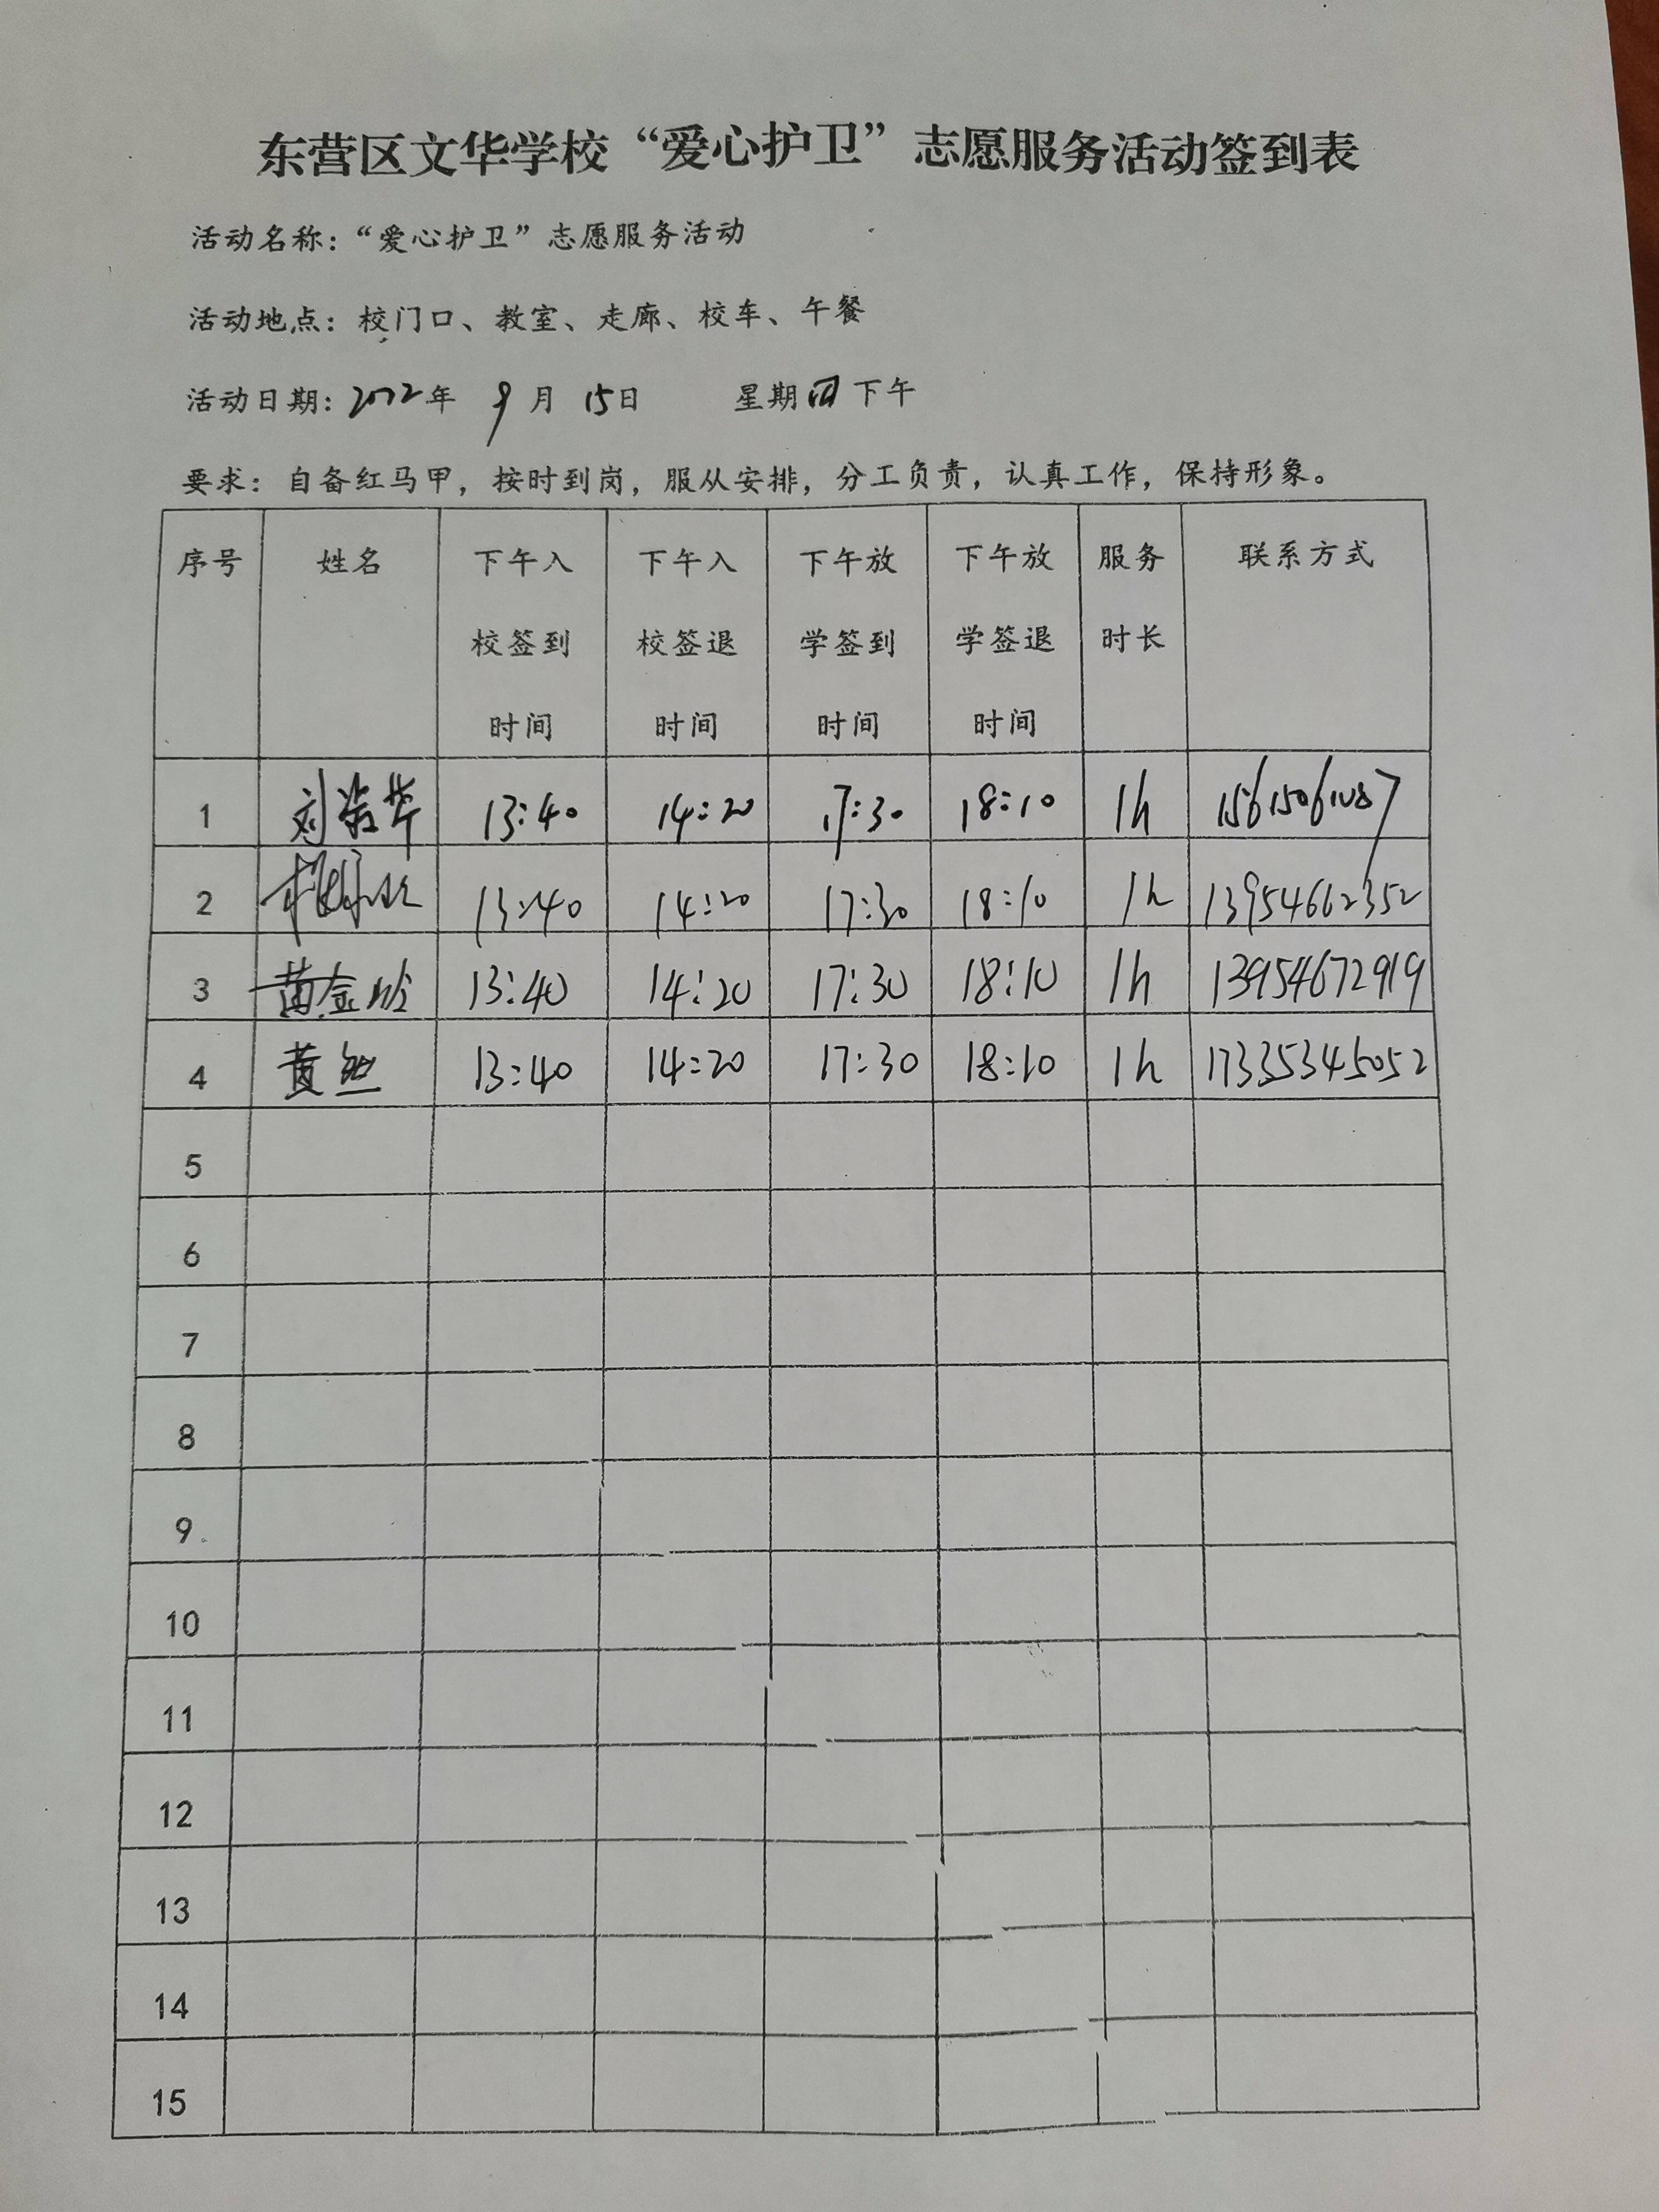 东营区文华学校“爱心护卫”志愿服务活动签到表
活动名称：“爱心护卫”志愿服务活动
活动地点：校门口、教室、走廊、校车、午餐
活动日期：2022年 9月 15日 星期四下午
要求：自备红马甲，按时到岗，服从安排，分工负责，认真工作，保持形象。
序号 姓名 下午入校签到时间 下午入校签退时间 下午放学签到时间 下午放学签退时间 服务时长 联系方式
1 13:40 14:20 17:30 18:10 1h
2 13:40 14:20 17:30 18:10 1h 13954662352
3 13:40 14:20 17:30 18:10 1h 13954672919
4 13:40 14:20 17:30 18:10 1h 17335345052
5
6
7
8
9
10
11
12
13
14
15